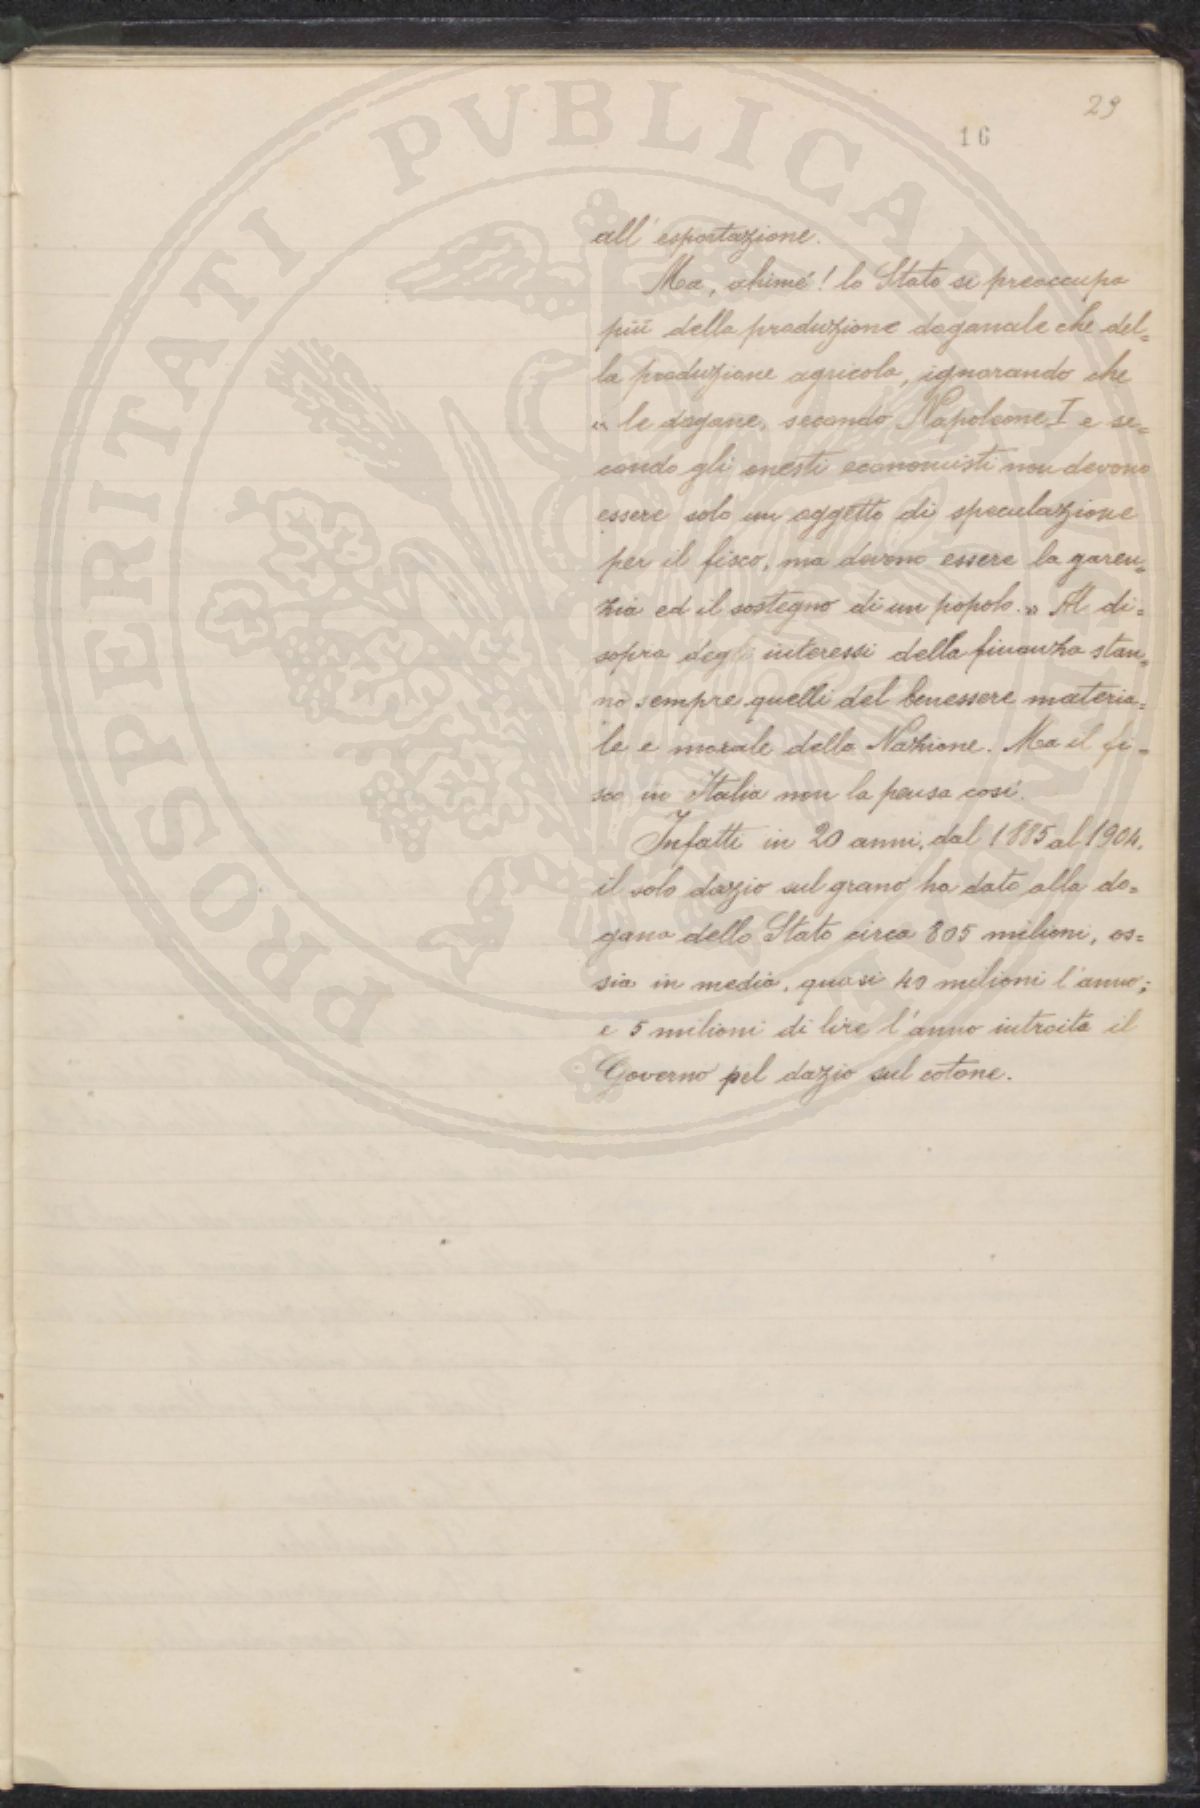 29
16
PROSPERITATI PVBLICAE
all'esportazione.
Ma, ahimé! lo Stato si preoccupa
più della produzione doganale che del=
la produzione agricola, ignorando che
« le dogane, secondo Napoleone I e se=
condo gli onesti economisti non devono
essere solo un oggetto di speculazione
per il fisco, ma devono essere la garen=
zia ed il sostegno di un popolo. » Al di=
sopra degli interessi della finanza stan=
no sempre quelli del benessere materia=
le e morale della Nazione. Ma il fi=
sco in Italia non la pensa così.
Infatti in 20 anni, dal 1885 al 1904,
il solo dazio sul grano ha dato alla do=
gana dello Stato circa 805 milioni, os=
sia in media, quasi 40 milioni l'anno;
e 5 milioni di lire l'anno introita il
Governo pel dazio sul cotone.